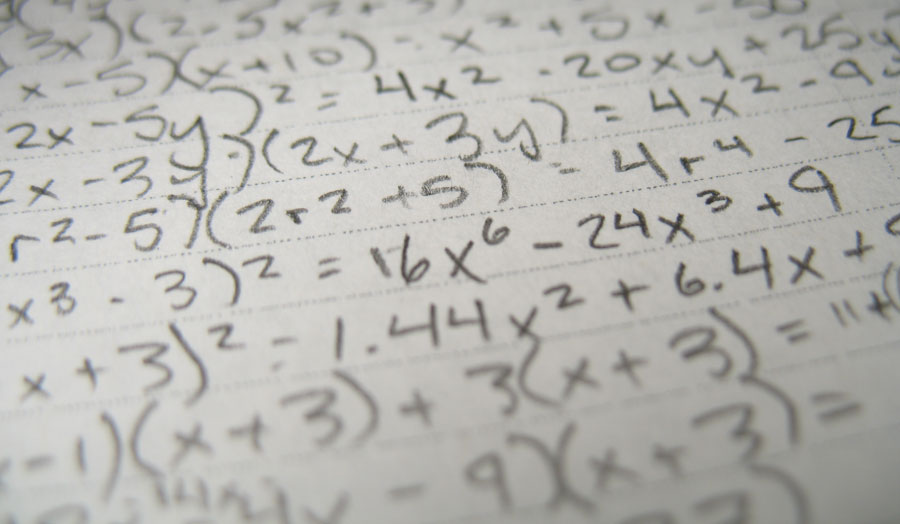 (3x)(2-5x²+3)
x-5)(x+10) - x²+5x-50
2x-5y)² = 4x²-20xy+25y²
2x-3y)(2x+3y) = 4x²-9y
r²-5)(2r²+5) = 4r⁴-25
x³-3)² = 16x⁶-24x³+9
x+3)² = 1.44x²+6.4x+
-1)(x+3)+3(x+3) = 11+(
x-9)(x+3) =